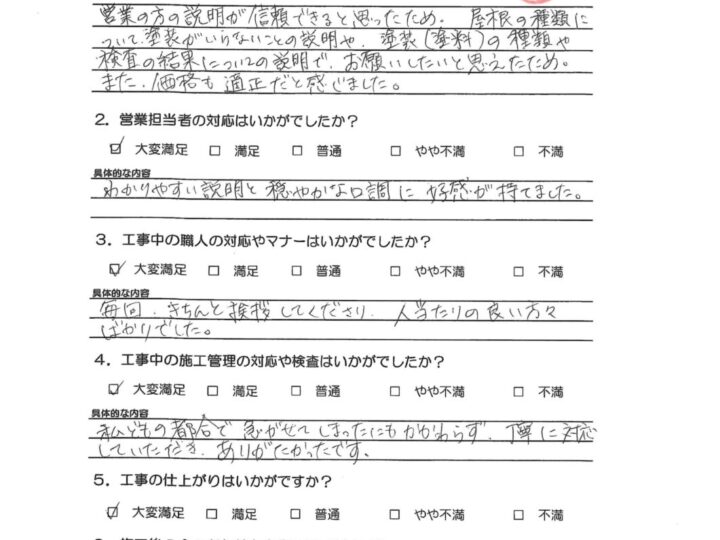 営業の方の説明が信頼できると思ったため。 屋根の種類に
ついて塗装がいらないことの説明や、塗装(塗料)の種類や
検査の結果についての説明で、お願いしたいと思えたため。
また、価格も適正だと感じました。
2. 営業担当者の対応はいかがでしたか?
☑ 大変満足 □ 満足 □ 普通 □ やや不満 □ 不満
具体的な内容
わかりやすい説明と穏やかな口調に好感が持てました。
3. 工事中の職人の対応やマナーはいかがでしたか?
☑ 大変満足 □ 満足 □ 普通 □ やや不満 □ 不満
具体的な内容
毎回、きちんと挨拶してくださり、人当たりの良い方々
ばかりでした。
4. 工事中の施工管理の対応や検査はいかがでしたか?
☑ 大変満足 □ 満足 □ 普通 □ やや不満 □ 不満
具体的な内容
私どもの都合で急がせてしまったにもかかわらず、丁寧に対応
していただき、ありがたかったです。
5. 工事の仕上がりはいかがですか?
☑ 大変満足 □ 満足 □ 普通 □ やや不満 □ 不満